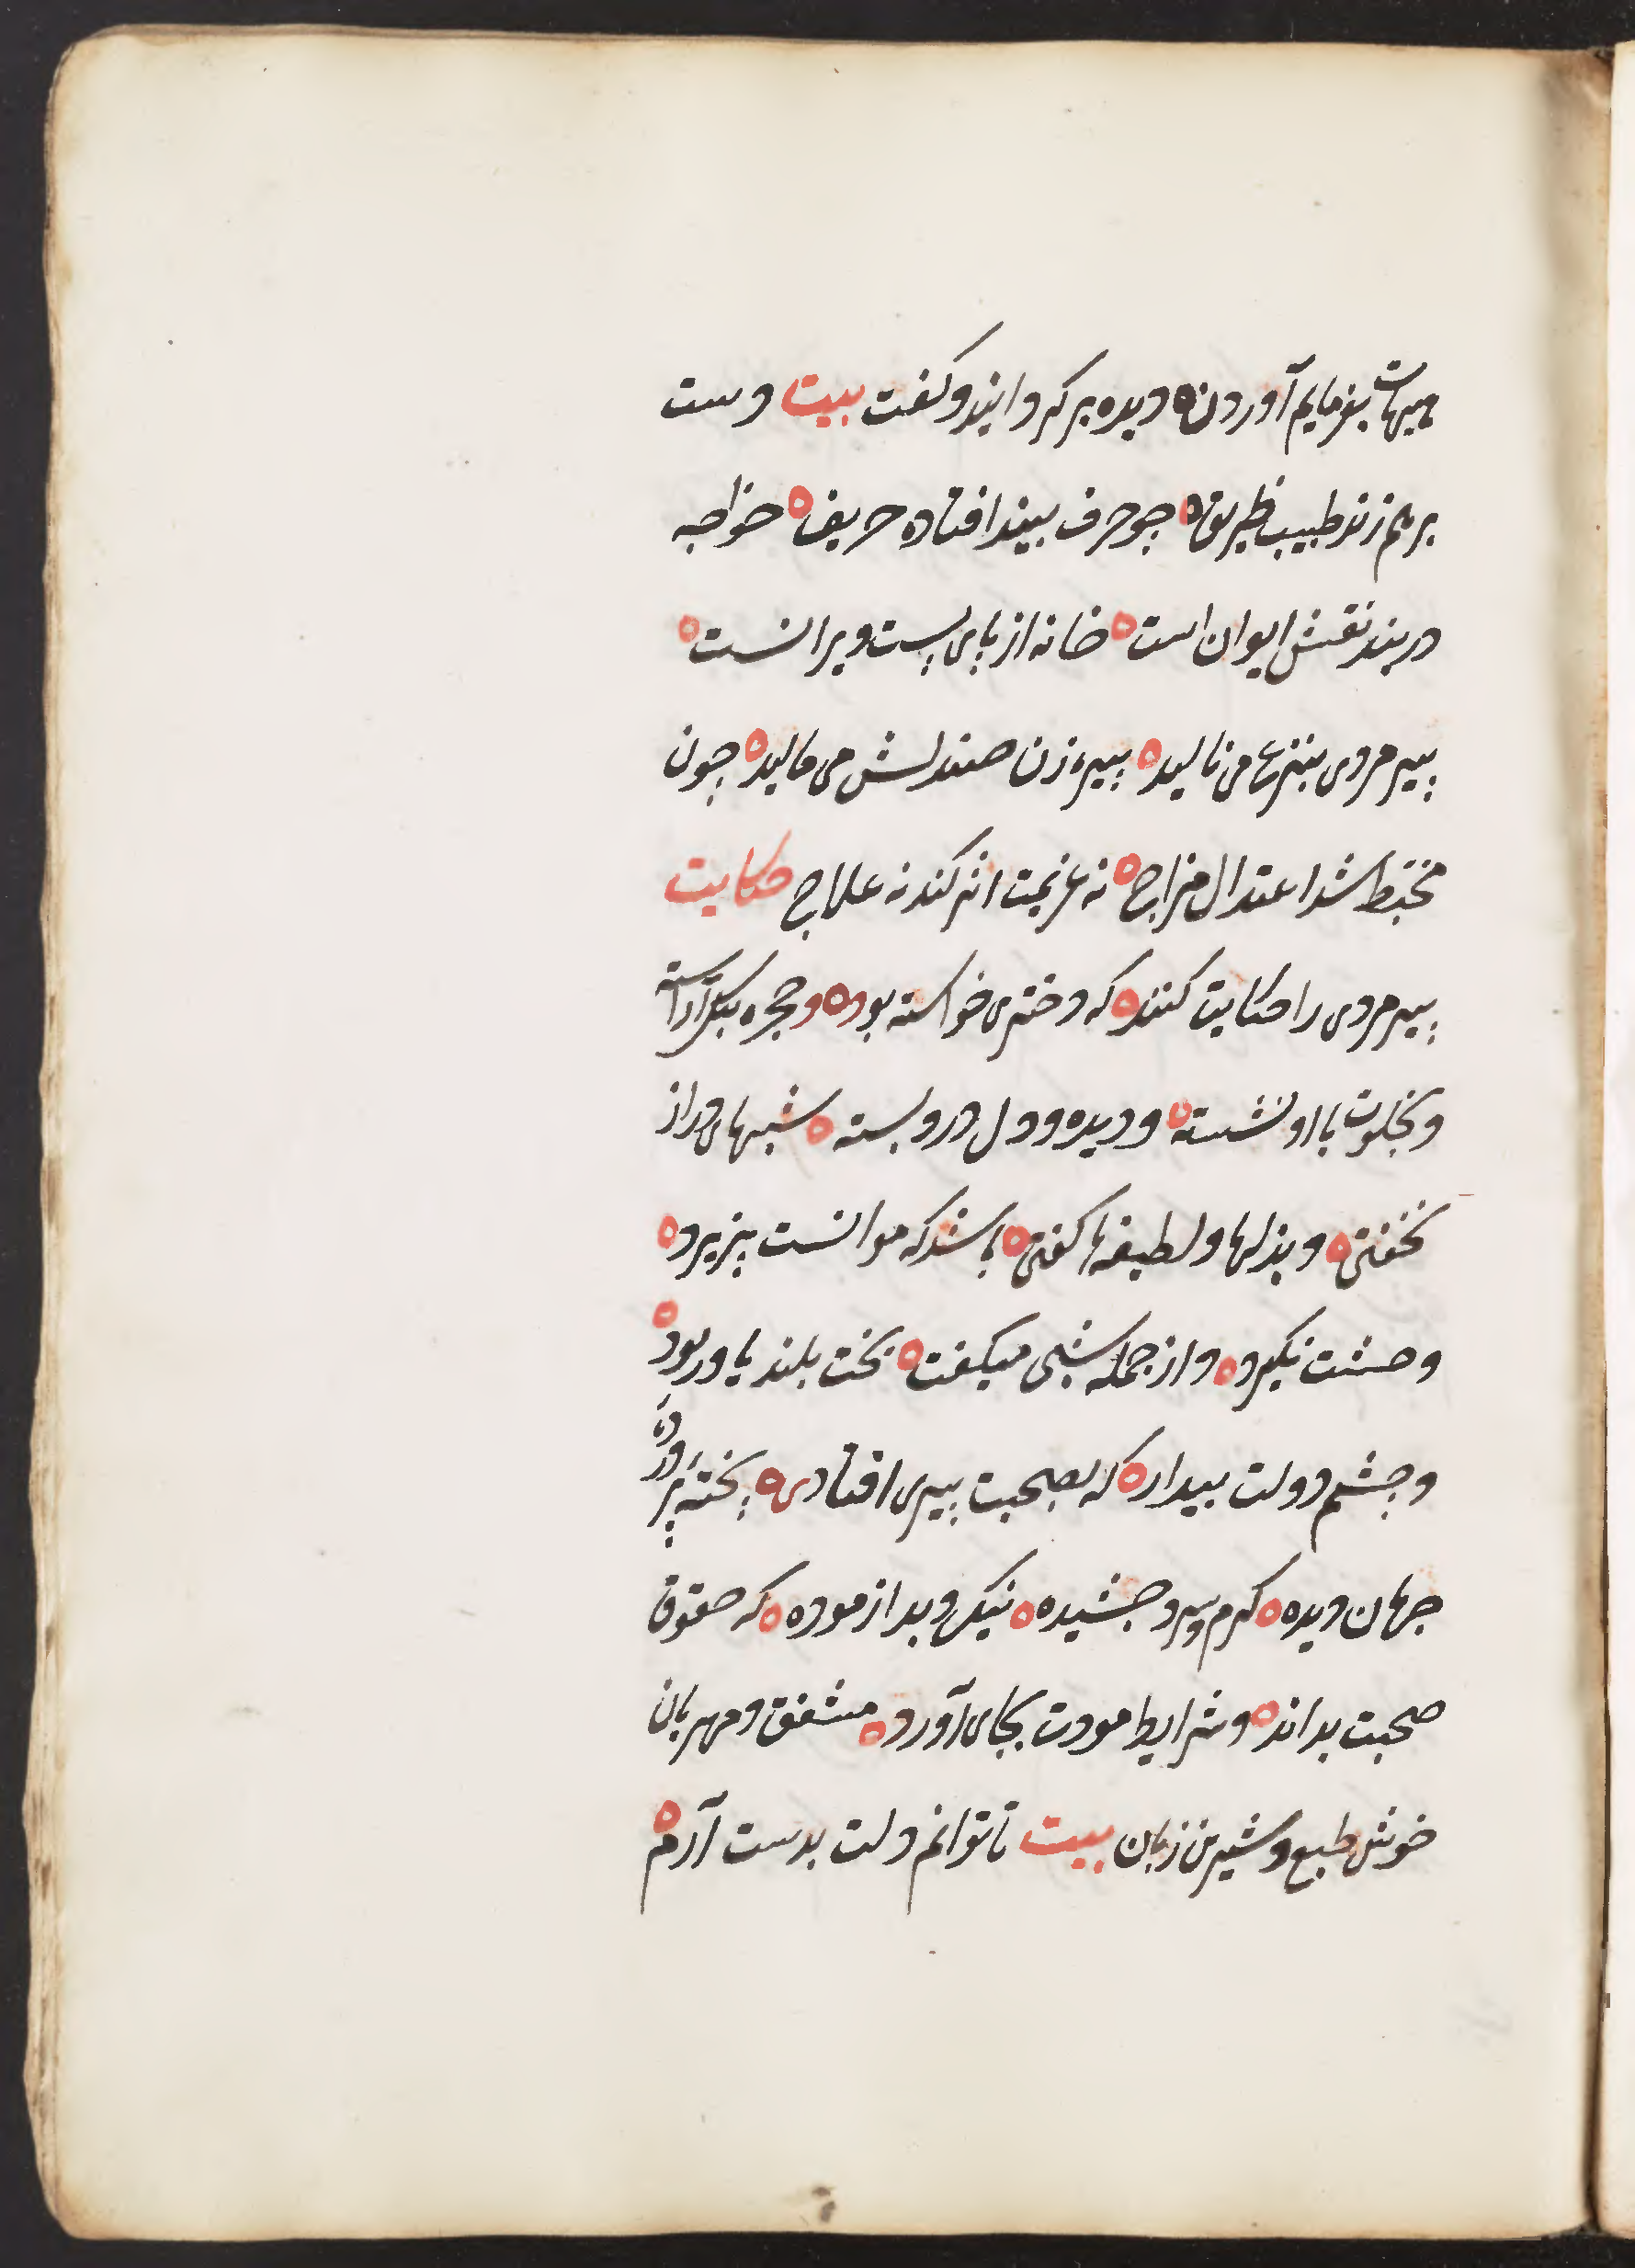 هیهات بفرمایم آوردن ه دیده برکردانید و کفت بیت دست
برهم زند طبیب ظریف ه چو حرف بیند افتاده حریف ه خواجه
در بند نقش ایوان است ه خانه از پای بست ویرانست ه
پیر مردی بنزع می نالید ه پیره زن صندلش می مالید ه چون
مخبط شد اعتدال مزاج ه نه عزیمت اثر کند نه علاج حکایت
پیر مردی را حکایت کنند ه که دختری خواسته بود ه و حجره بکل آراسته
و بخلوت با او نشسته ه و دیده و دل درو بسته ه شبهای دراز
نخفتی ه و بذلها و لطیفها کفتی ه باشد که موانست پزیرد ه
وحشت نکیرد ه و از جمله شبی میکفت ه بخت بلند یاور بود ه
و چشم دولت بیدار ه که بصحبت پیری افتادی ه پخته پرورده
جهان دیده ه کرم و سرد چشیده ه نیک و بد ازموده ه که حقوق
صحبت بداند ه و شرایط مودت بجای آورد ه مشفق و مهربان
خوش طبع و شیرین زبان بیت تا توانم دلت بدست آرم ه